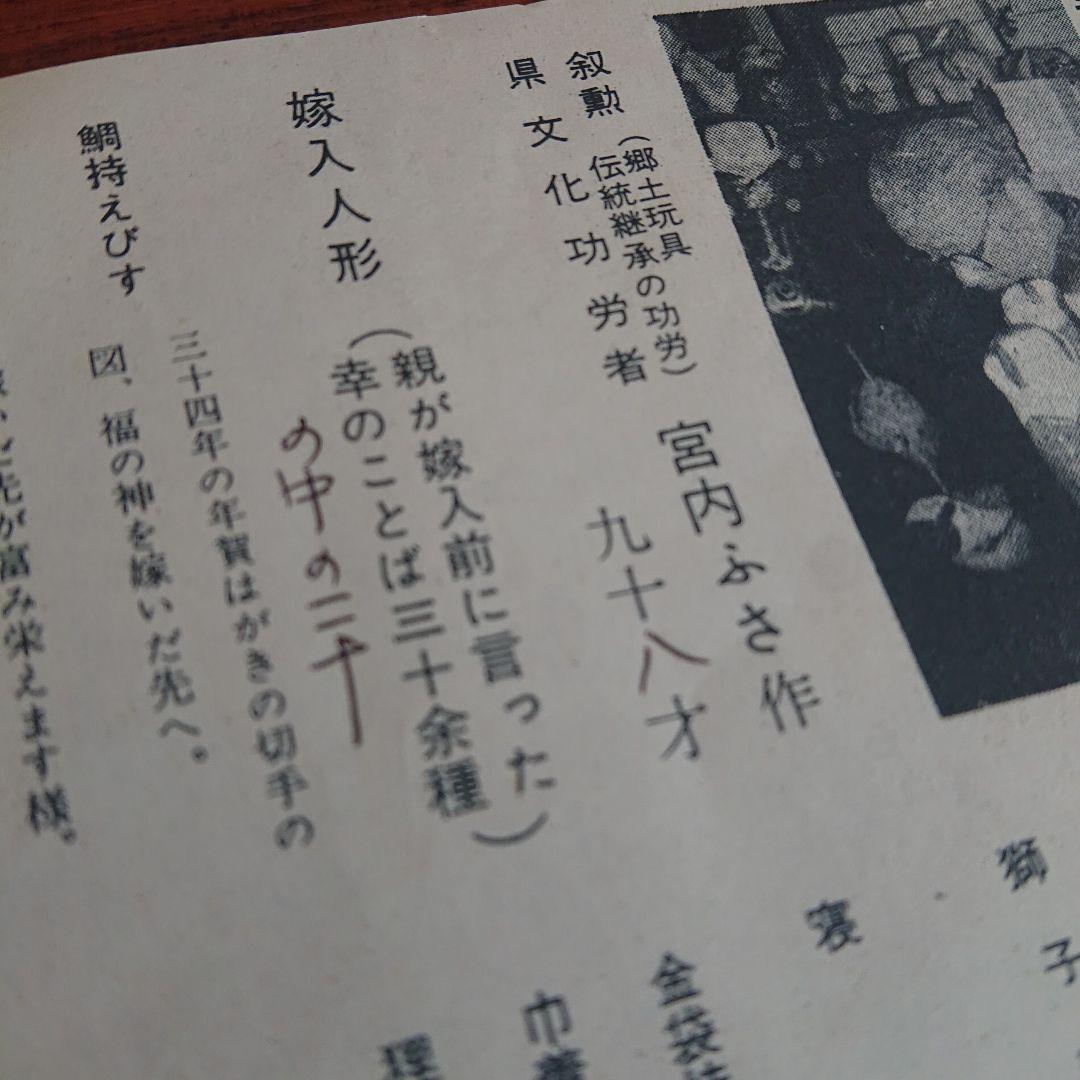 叙勲（郷土玩具伝統継承の功労）
県文化功労者
宮内ふさ作
九十八才
嫁入人形（親が嫁入前に言った幸のことば三十余種）
の中の二十
鯛持えびす
三十四年の年賀はがきの切手の
図、福の神を嫁いだ先へ。
先が富み栄えます様。
獅子
寝
金袋
巾着